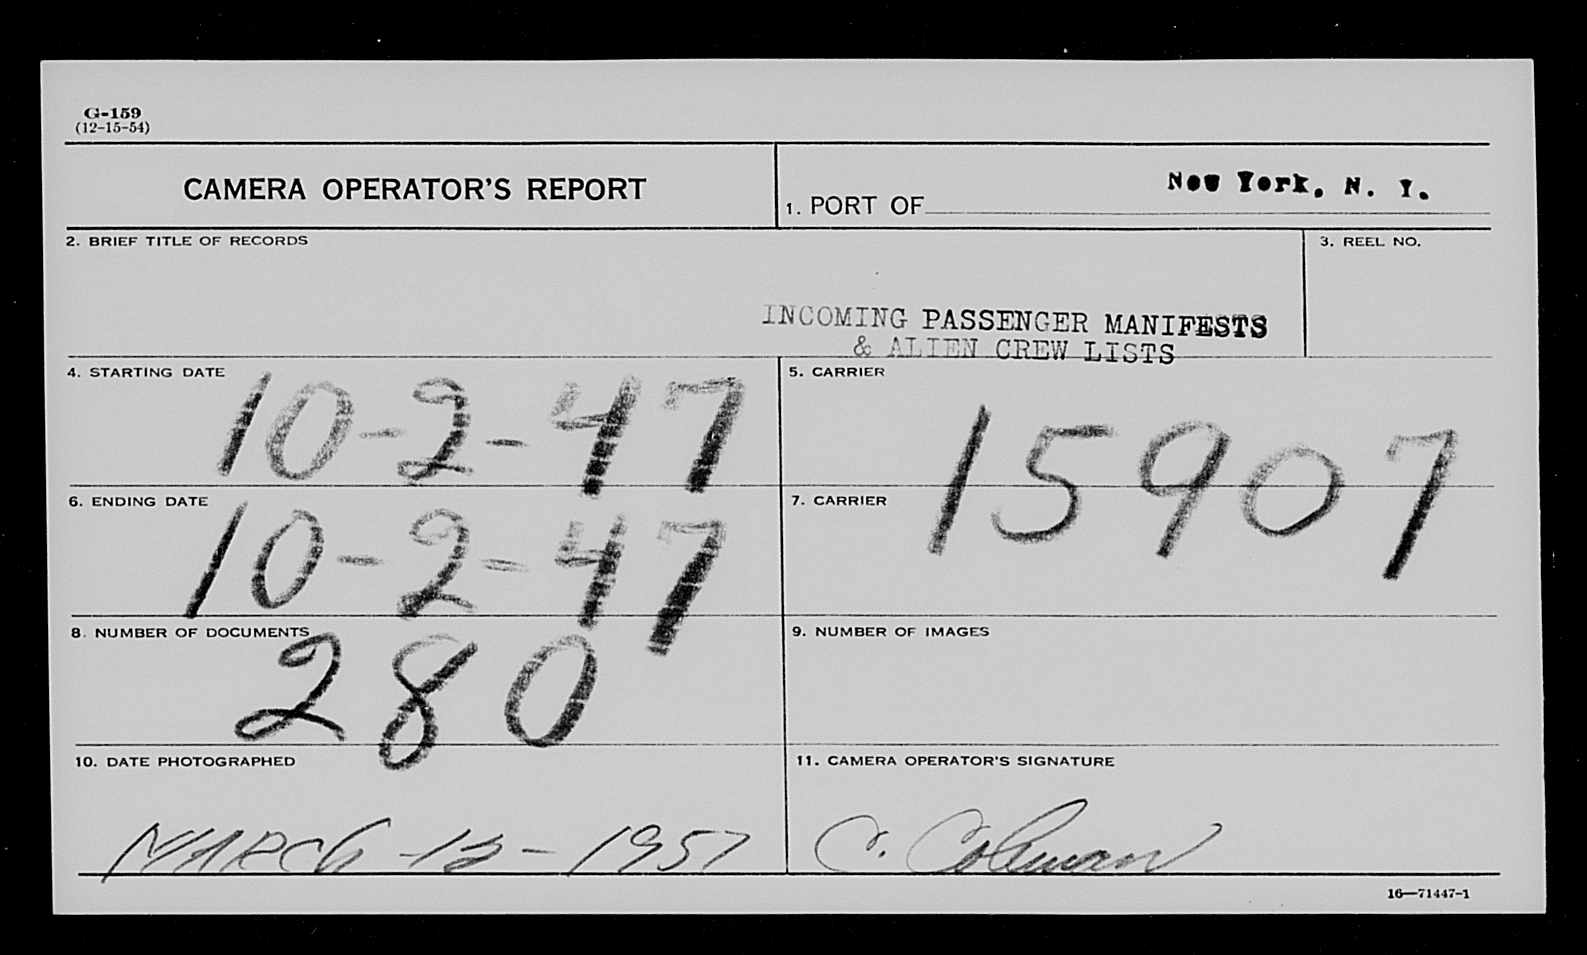 G-159
(12-15-54)
CAMERA OPERATOR'S REPORT
1. PORT OF New York, N. Y.
2. BRIEF TITLE OF RECORDS
3. REEL NO.
INCOMING PASSENGER MANIFESTS
& ALIEN CREW LISTS
4. STARTING DATE 10-2-47
5. CARRIER
15907
6. ENDING DATE 10-2-47
7. CARRIER
8. NUMBER OF DOCUMENTS 280
9. NUMBER OF IMAGES
10. DATE PHOTOGRAPHED
11. CAMERA OPERATOR'S SIGNATURE
MARCH - - 1957
C. Coleman
16—71447-1